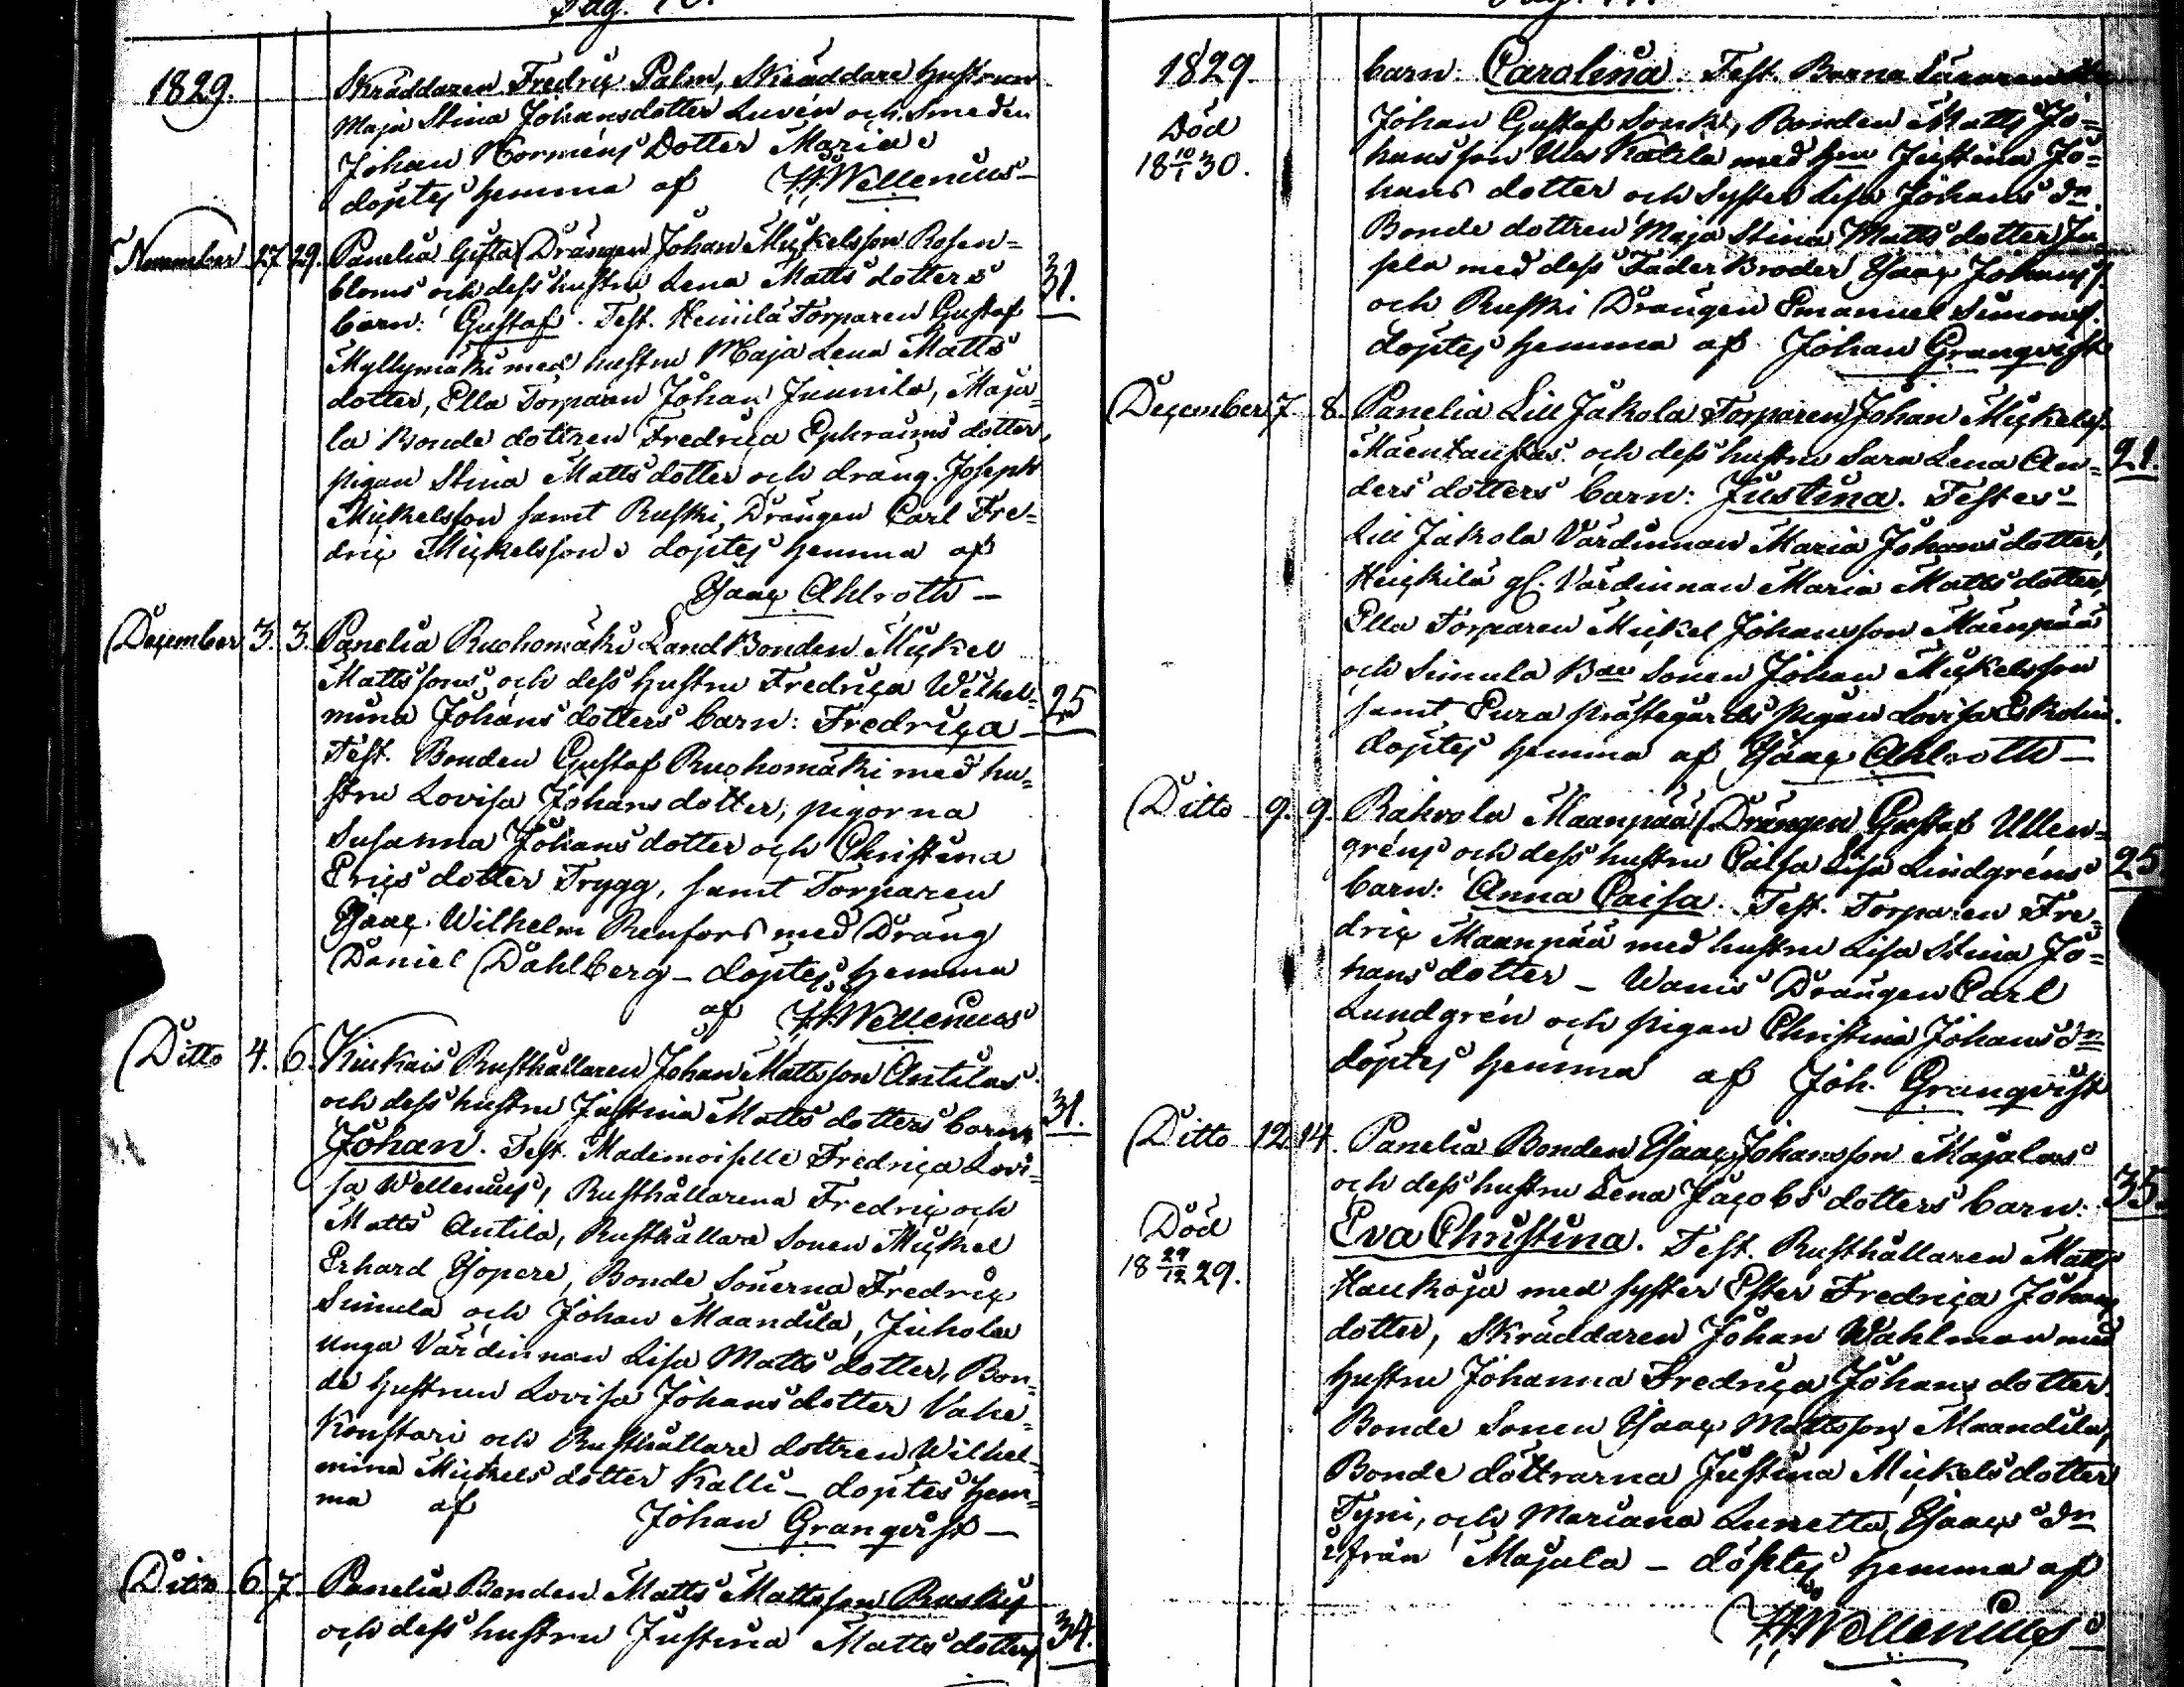 Pag.
1829.
Skräddaren Fredric Palm, Skräddare Hustrun
Maja Stina Johansdotter Luvén och Smeden
Johan Norméns Dotter Maria
döptes hemma af H. Wellenius
November 27 29. Panelia Gifta Drängen Johan Mickelsson Rosen=
bloms och dess hustru Lena Matts dotters 31.
barn: Gustaf. Test. Heiniilä Torparen Gustaf
Myllymäki med hustru Maja Lena Matts
dotter, Ella Torparen Johan Junnila, Maja=
la Bonde dottren Fredrica Ephraims dotter,
pigan Stina Matts dotter och dräng. Joseph
Mickelsson samt Ruski Drängen Carl Fre=
dric Mickelsson döptes hemma af
Isaac Ahlroth —
December 3. 3. Panelia Ruohomäki LandBonden Mickel
Mattssons och dess Hustru Fredrica Wilhel= 25
mina Johans dotters barn: Fredrica —
Test. Bonden Gustaf Ruohomäki med hu=
stru Lovisa Johans dotter, pigorna
Susanna Johans dotter och Christina
Erics dotter Trygg, samt Torparen
Isaac Wilhelm Renfors med Dräng
Daniel Dahlberg — döptes hemma
af H. Wellenius
Ditto 4. 6. Kiukais Rusthållaren Johan Mattsson Antilas
och dess hustru Justina Matts dotters barn 31.
Johan. Test. Mademoiselle Fredrica Lovi=
sa Wellenius, Rusthållarena Fredric och
Matts Antila, Rusthållare Sonen Mickel
Erhard Isopere, Bonde Sönerna Fredric
Sinnela och Johan Maandila, Juhola
unga Värdinnan Lisa Matts dotter, Bon=
de Hustrun Lovisa Johans dotter Vähe=
Konstari och Rusthållare dottren Wilhel=
mina Mickels dotter Kalli — döptes hem=
ma af Johan Granqvist —
Ditto 6 7. Panelia Bonden Matts Mattsson Ruskis
och dess hustru Justina Matts dotters 34.
Pag.
1829
barn: Carolina. Test. Barna Läraren
Död Johan Gustaf Sonk, Bonden Matts Jo=
18 10/1 30. hansson Ulas Katila med Hru Justina Jo=
hans dotter och Syster Lisa Johans dr.
Bonde dottren Maja Stina Matts dotter
sela med dess Fader Broder Isaac Johans s.
och Ruski Drängen Emanuel Simons s.
döptes hemma af Johan Granqvist
December 7 8. Panelia Lill Jakola Torparen Johan Mickels s.
Mäentaustas och dess hustru Sara Lena An= 21.
ders dotters barn: Justina. Testes —
Lill Jakola Värdinnan Maria Johans dotter,
Heickilä gl. Värdinnan Maria Matts dotter,
Ella Torparen Mickel Johansson Mäenpää
och Sinnula Bde Sonen Johan Mickelsson
samt Eura prästegårds pigan Lovisa Eskolin.
döptes hemma af Isaac Ahlroth —
Ditto 9. 9. Rahvola Maanpää Drängen Gustaf Ullen=
gréns och dess hustru Caisa Lisa Lindgréns 25
barn: Anna Caisa. Test. Torparen Fre=
dric Maanpää med hustru Lisa Stina Jo=
hans dotter — Wanis Drängen Carl
Lundgrén och pigan Christina Johans dr
döptes hemma af Joh. Granqvist
Ditto 12. 14. Panelia Bonden Isaac Johansson Majalas
och dess hustru Lena Jacobs dotters barn: 35.
Död Eva Christina. Test. Rusthållaren Matts
18 29/12 29. Haukoja med syster Ester Fredrica Johans
dotter, Skräddaren Johan Wahlman med
Hustru Johanna Fredrica Johans dotter
Bonde Sonen Isaac Mattsson Maandila,
Bonde döttrarna Justina Mickels dotter
Tyni, och Mariana Lunetta Isaacs dr
ifrån Majala — döptes hemma af
H. Wellenius